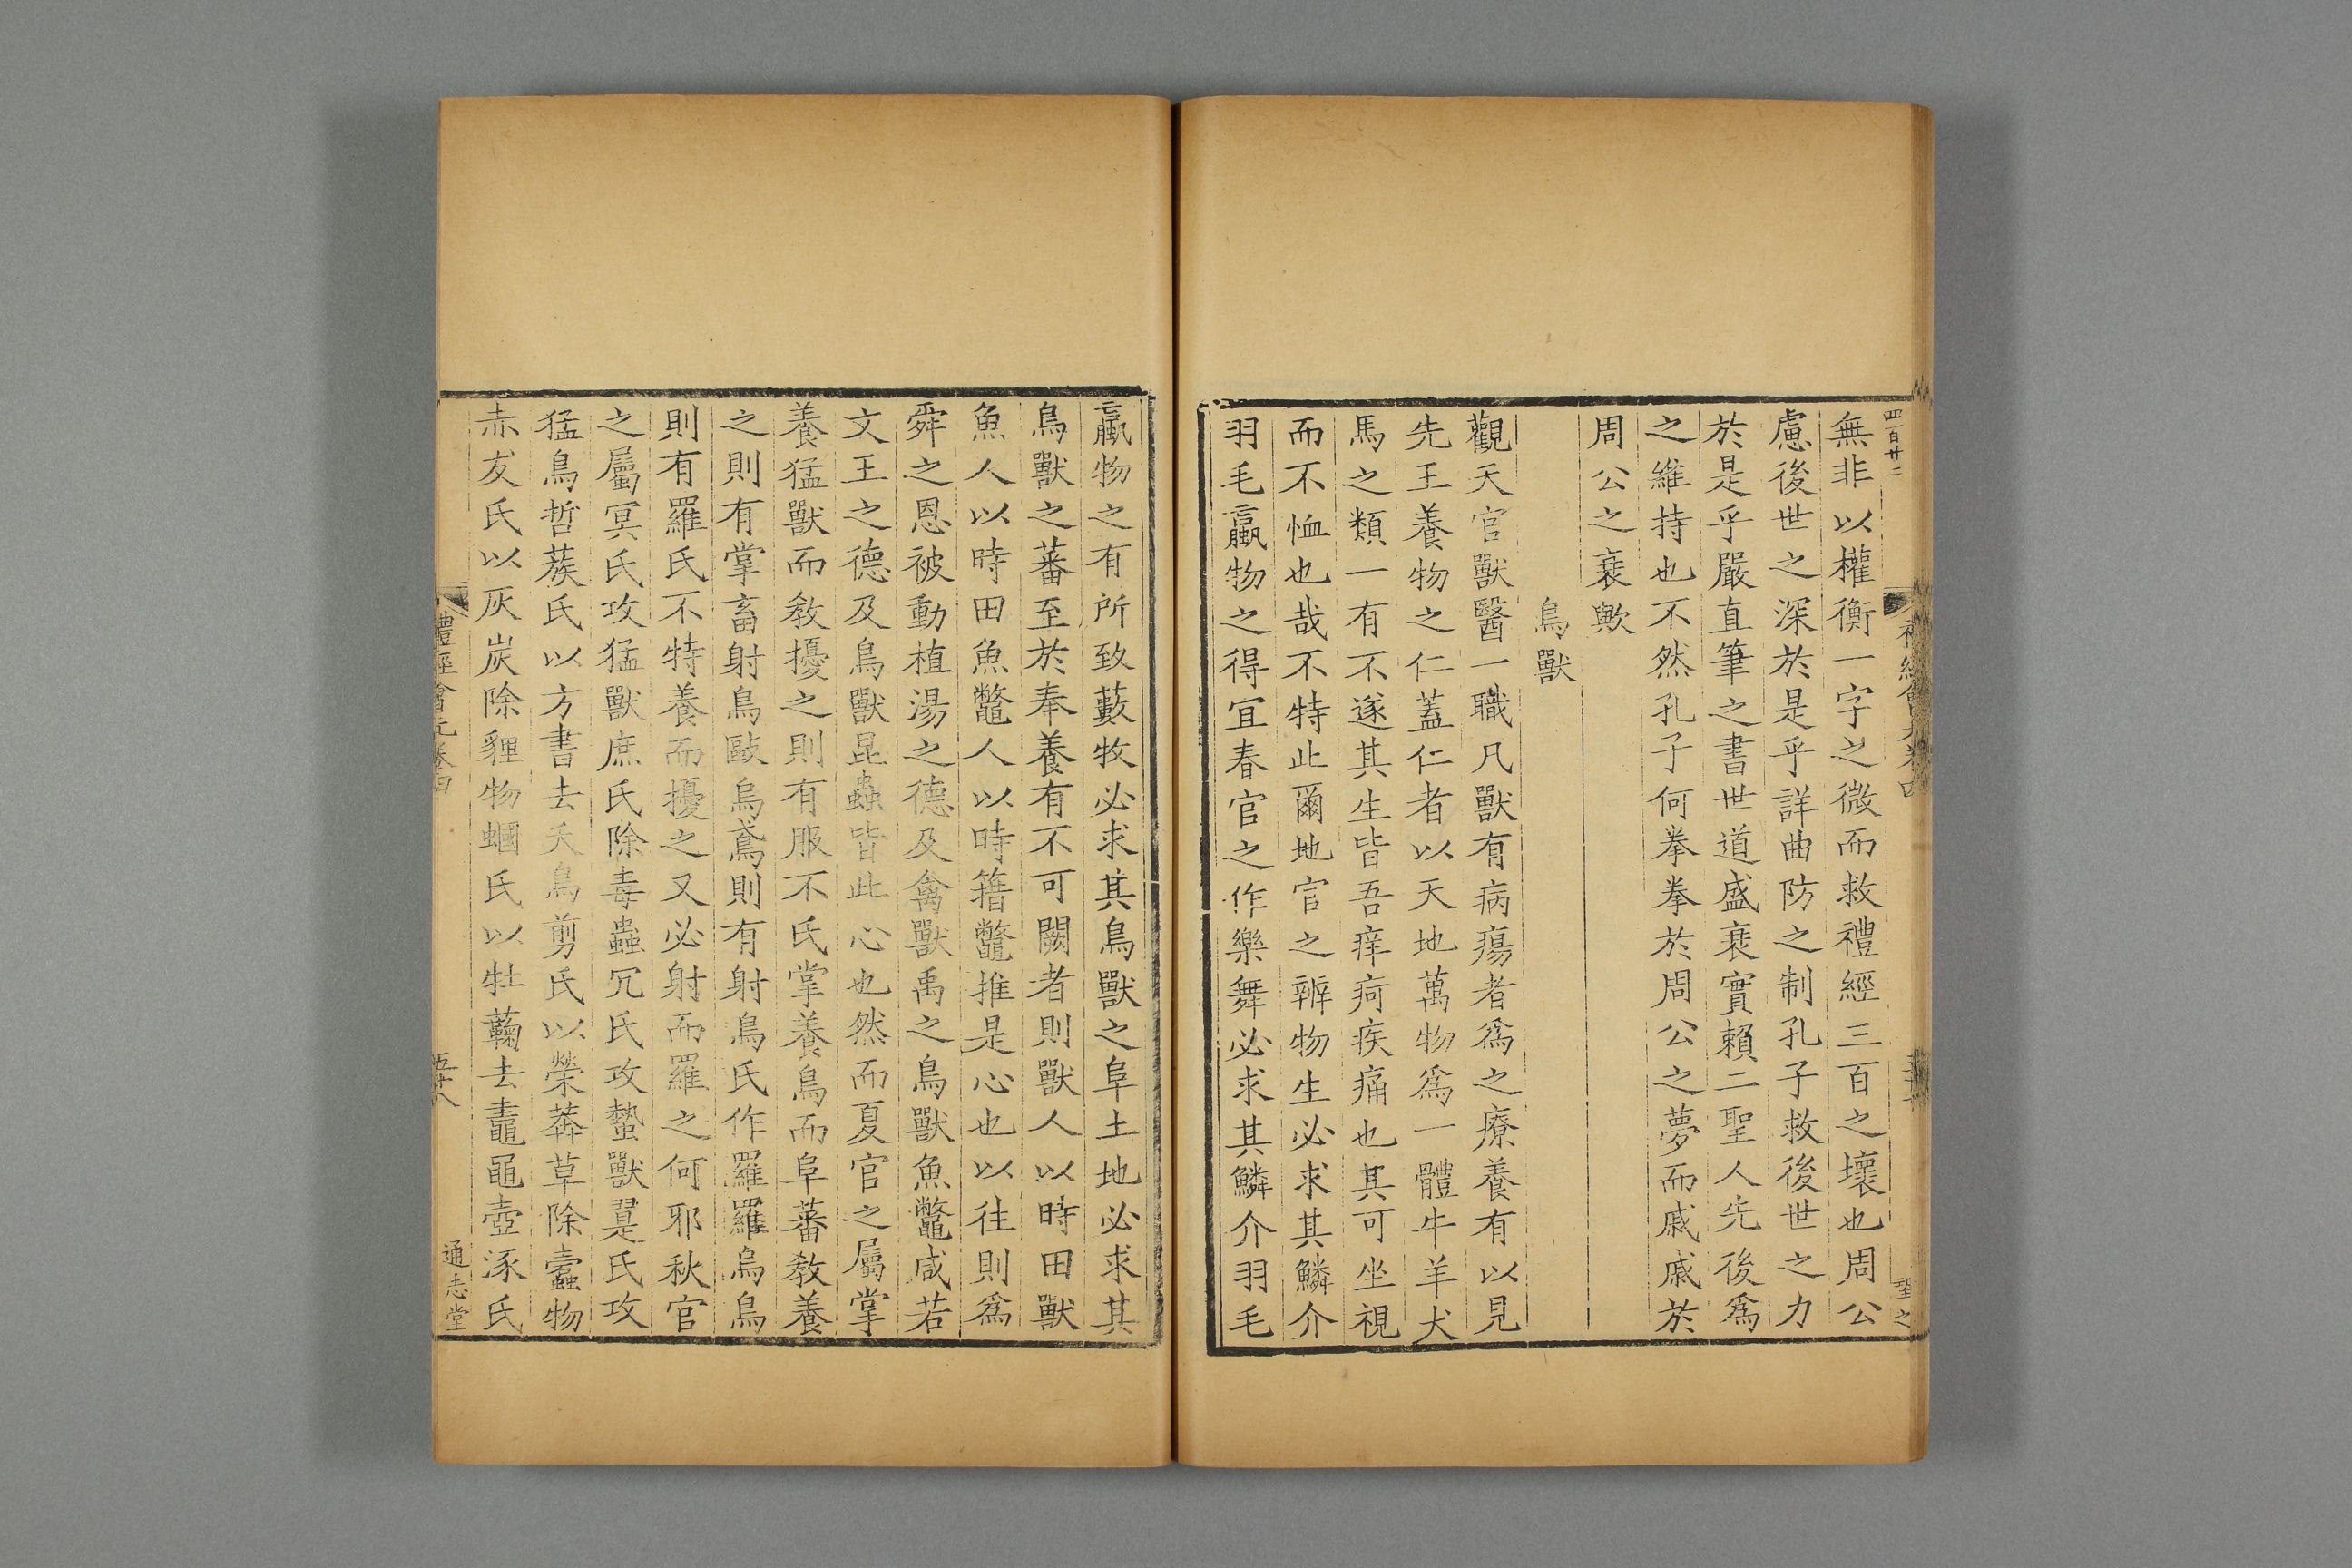 四百廿二
無非以權衡一字之微而救禮經三百之壞也周公
慮後世之深於是乎詳曲防之制孔子救後世之力
於是乎嚴直筆之書世道盛衰實賴二聖人先後爲
之維持也不然孔子何拳拳於周公之夢而戚戚於
周公之衰歟
鳥獸
觀天官獸醫一職凡獸有病瘍者爲之療養有以見
先王養物之仁蓋仁者以天地萬物爲一體牛羊犬
馬之類一有不遂其生皆吾痒疴疾痛也其可坐視
而不恤也哉不特止爾地官之辨物生必求其鱗介
羽毛臝物之得宜春官之作樂舞必求其鱗介羽毛
臝物之有所致藪牧必求其鳥獸之阜土地必求其
鳥獸之蕃至於奉養有不可闕者則獸人以時田獸
魚人以時田魚鼈人以時簎鼈推是心也以往則爲
舜之恩被動植湯之德及禽獸禹之鳥獸魚鼈咸若
文王之德及鳥獸昆蟲皆此心也然而夏官之屬掌
養猛獸而敎擾之則有服不氏掌養鳥而阜蕃敎養
之則有掌畜射鳥敺烏鳶則有射鳥氏作羅羅烏鳥
則有羅氏不特養而擾之又必射而羅之何邪秋官
之屬冥氏攻猛獸庶氏除毒蠱冗氏攻蟄獸翨氏攻
猛鳥哲蔟氏以方書去夭鳥剪氏以禜莽草除蠹物
赤犮氏以灰炭除貍物蟈氏以牡蘜去鼃黽壺涿氏
禮經會元卷四
五十八
通志堂